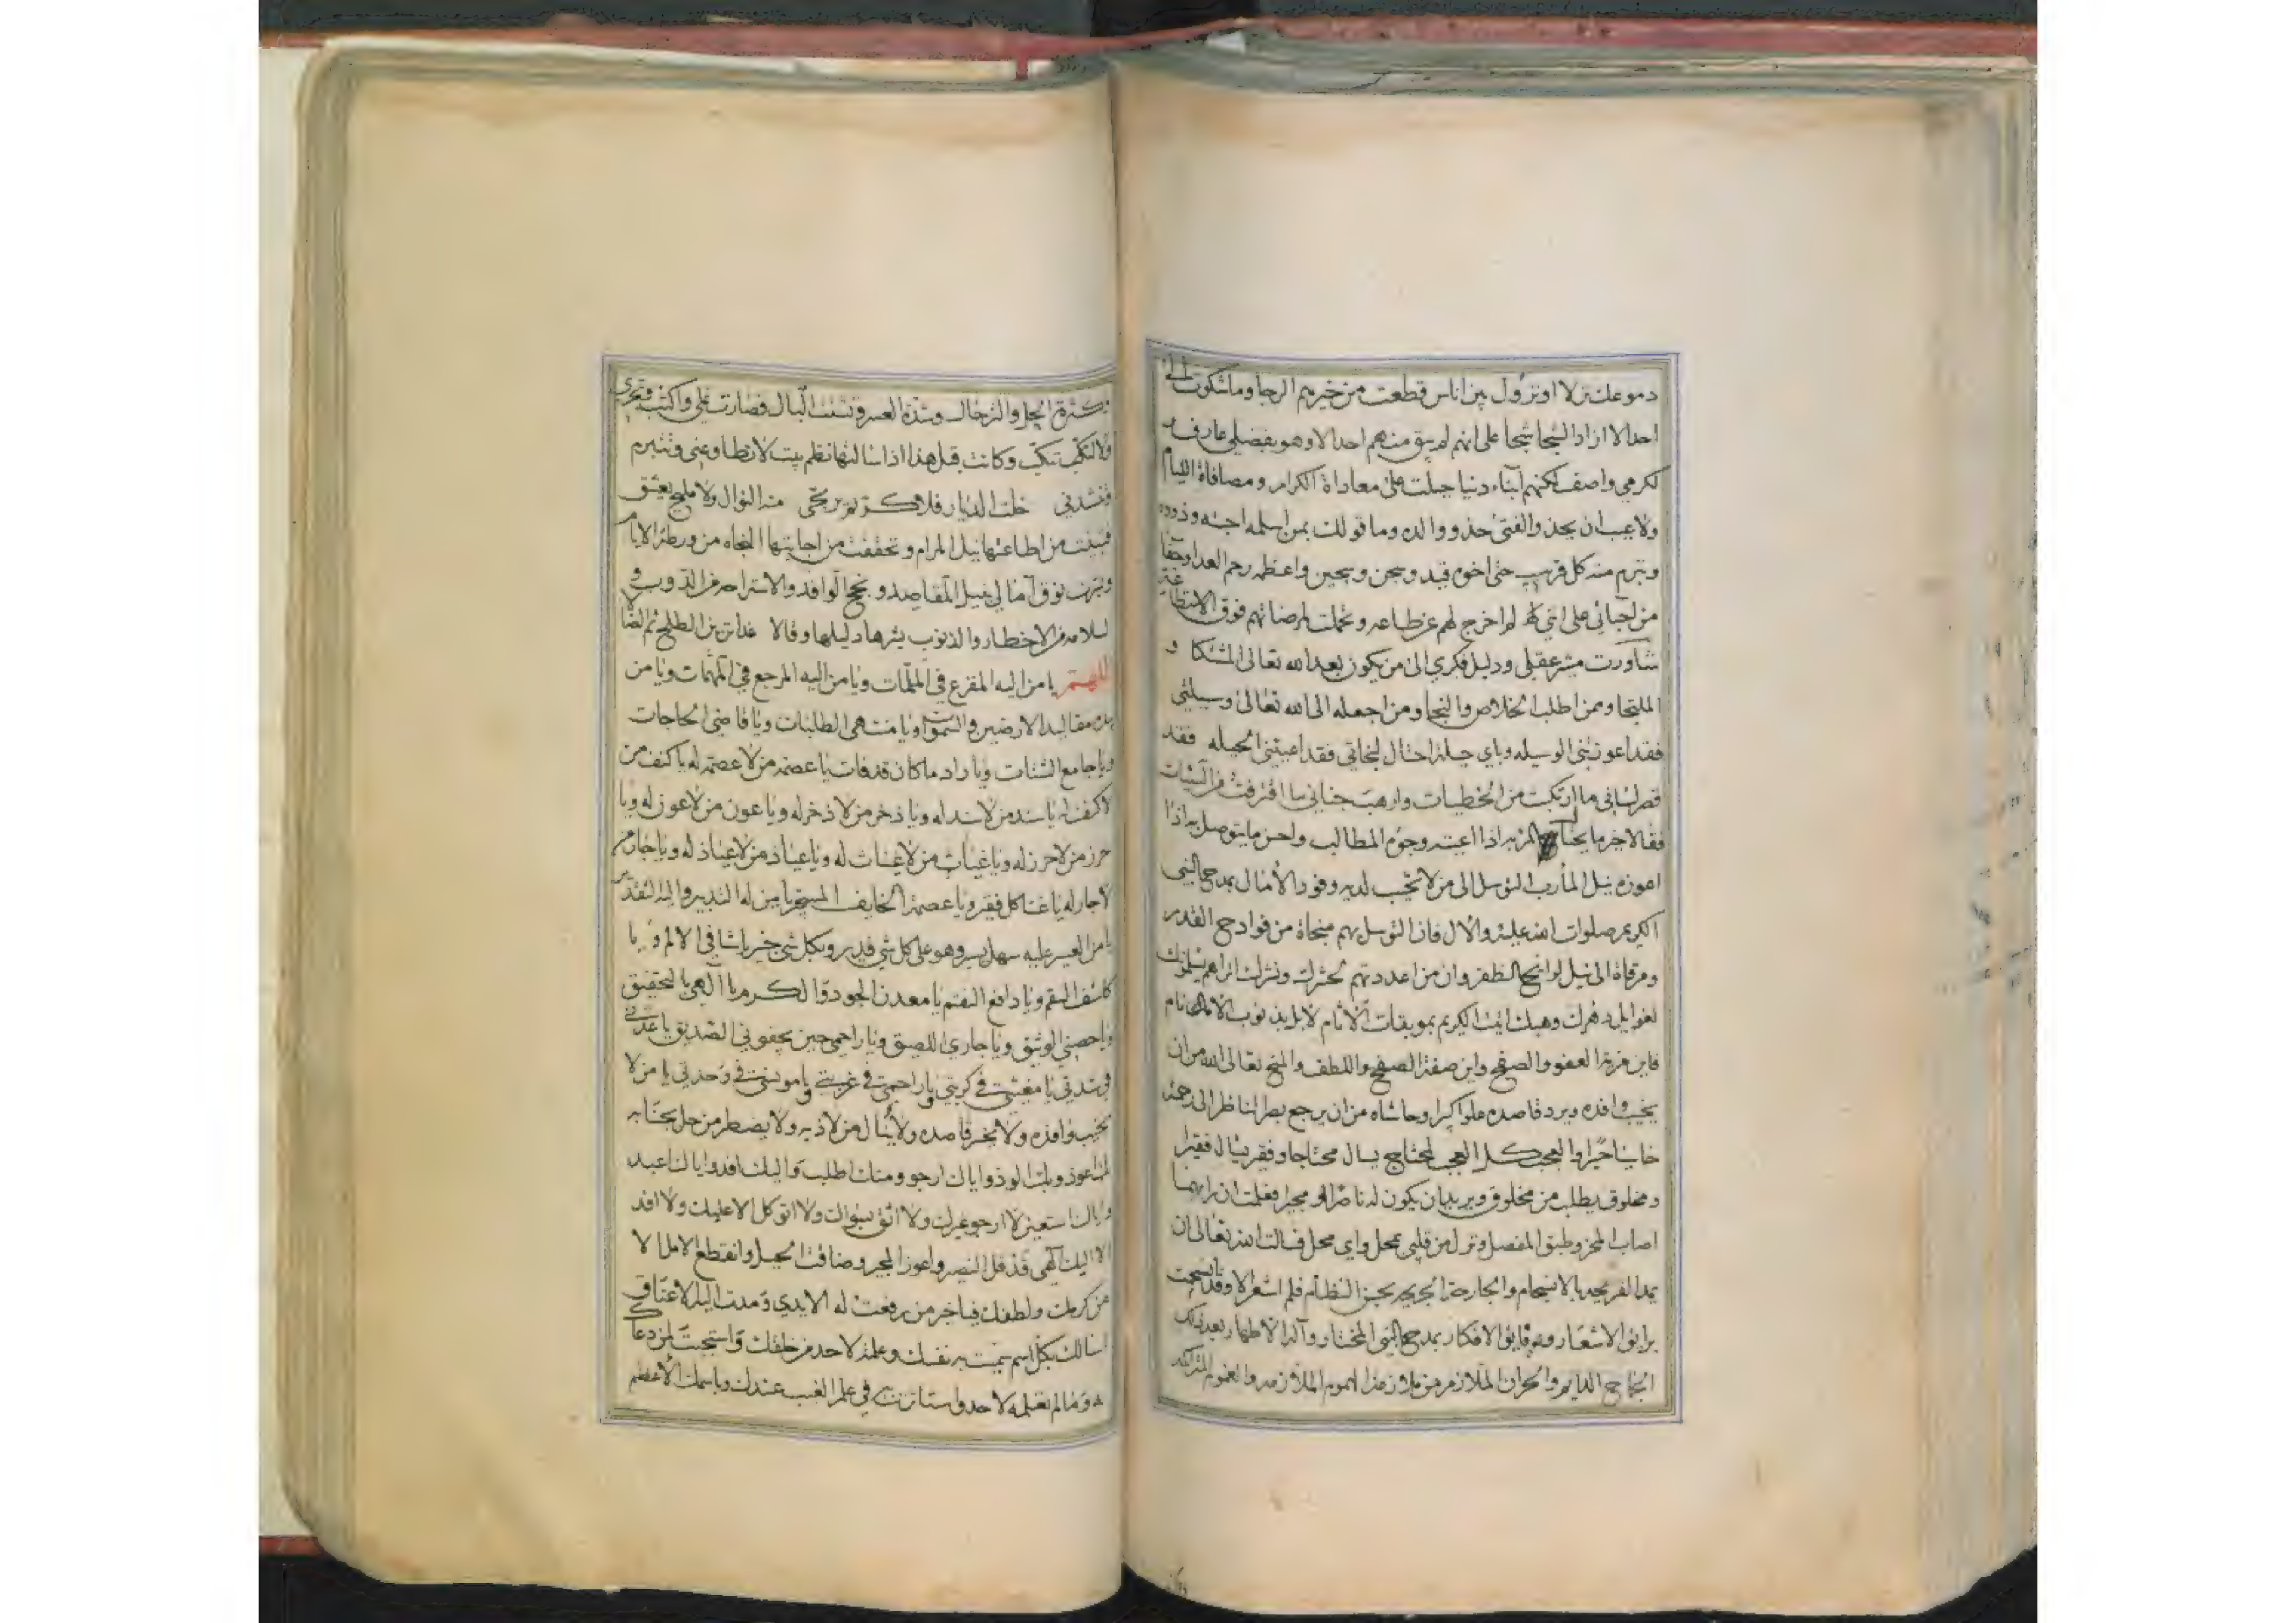 دموعك نزلا او نزول بين اناس قطعت من خيرهم الرجا وما شكوت الى
احد الا ازداد الشجا شجا على انهم لم يبق منهم احد الا وهو بفضلي عارف و
لكرمي واصف لكنهم ابناء دنيا جبلت على معاداة الكرام ومصافاة الليام
ولا عجب ان يحذو الفتى حذو والده وما قولك بمن اسلمه احبته وذووه
وتبرم منه كل قريب حتى اخوه قيد وسجن وسجين واعظمهم العدا وجفا
من احبائي على انني لم اخرج لهم عن طاعه وتحملت لمرضاتهم فوق الاستطاعه
شاورت مشير عقلي ودليل فكري الى من يكون بعد الله تعالى المشتكا و
الملتجا وممن اطلب الخلاص والنجا ومن اجعله الى الله تعالى وسيلتي
فقد اعوزتني الوسيله وباي حيلة احتال لنجاتي فقد اعيتني الحيله فقد
قصر لساني ما ارتكبت من الخطيات وارهب جناني ما اقترفت من السيئات
فقالا خير ما يحتال المرء به اذا اعيته وجوه المطالب واحسن ما يتوصل به اذا
اعوزه نيل المأرب التوسل الى من لا تخيب لديه وفود الآمال بمدح النبي
الكريم صلوات الله عليه والآل فان التوسل بهم منجاة من فوادح القدر
ومرقاة الى نيل لوائح الظفر وان من اعددتهم لحشرك ونشرك اتراهم يسلمونك
لغوايل دهرك وهبك اتيت الكريم بموبقات الآثام
فاين مزية العفو والصفح واين صفة الصفح واللطف والمنح تعالى الله من ان
يخيب وافده ويرد قاصده علوا كبيرا وحاشاه من ان يرجع بصر الناظر الى رحمته
خاسئا حسيرا والعجب كل العجب لمحتاج يسال محتاجا وفقير يسال فقيرا
ومخلوق يطلب من مخلوق ويريد ان يكون له ناصرا او مجيرا فعلمت ان رايهما
اصاب المحز وطبق المفصل ونزل من قلبي بمحل واي محل فسالت الله تعالى ان
يمد القريحه بالانسجام والجارحة الجريحه بحسن النظام فلم اشعر الا وقد سمحت
برايق الاشعار وفايق الافكار بمدح النبي المختار وآله الاطهار بعد ذلك
الجماح الدايم والحران الملازم من هذا الهموم الملازمه والغموم المتراكمه
بكثرة الحل والترحال وشدة العسر وتشتت البال فصارت تملي واكتب وتجري
ولا تنكب وكانت قبل هذا اذا سالتها نظم بيت لا تطاوعني وتتبرم
وتنشدني خلت الديار فلا كريم يرتجى منه النوال ولا مليح يعشق
فتيقنت من اطاعتها نيل المرام وتحققت من اجابتها النجاه من ورطة الايام
آمالي بنيل المقاصد ونجح الوافد والاستراحه من الذنوب و
السلامه من الاخطار والذنوب يثرها دليلها وقالا
اللهم يا من اليه المفزع في الملمات ويا من اليه المرجع في المهمات ويا من
بيده مقاليد الارضين والسموات ويا منتهى الطلبات ويا قاضي الحاجات
ويا جامع الشتات ويا راد ما كان قد فات يا عصمة من لا عصمة له يا كنف من
لا كنف له يا سند من لا سند له ويا ذخر من لا ذخر له ويا عون من لا عون له ويا
حرز من لا حرز له ويا غياث من لا غياث له ويا عياذ من لا عياذ له ويا جار من
لا جار له يا غنا كل فقير ويا عصمة الخايف المستجير يا من له التدبير واليه التقدير
يا من العسير عليه سهل يسير وهو على كل شي قدير وبكل شي خبير يا شافي الالم و يا
كاشف السقم ويا دافع النقم يا معدن الجود والكرم يا آلهي بالتحقيق
ويا حصني الوثيق ويا جاري اللصيق ويا راحمي حين يجفوني الصديق يا عدتي
في شدتي يا مغيثي في كربتي ويا راحمي في غربتي ويا مونسي في وحدتي يا من لا
يخيب وافده ولا يخسر قاصده ولا من لاذ به ولا يضطر من حل بجنابه
بك اعوذ وبك الوذ واياك ارجو ومنك اطلب واليك افد واياك اعبد
واياك استعين لا ارجو غيرك ولا اثق بسواك ولا اتوكل الا عليك ولا افد
الا اليك آلهي قد قل النصير واعوز المجير وضاقت الحيل وانقطع الامل الا
من كرمك ولطفك فيا خير من رفعت له الايدي ومدت اليه الاعناق
اسالك بكل اسم سميت به نفسك وعلمته لاحد من خلقك واستجبت لمن دعاك
به وما لم تعلمه لاحد واستاثرت به في علم الغيب عندك وباسمك الاعظم